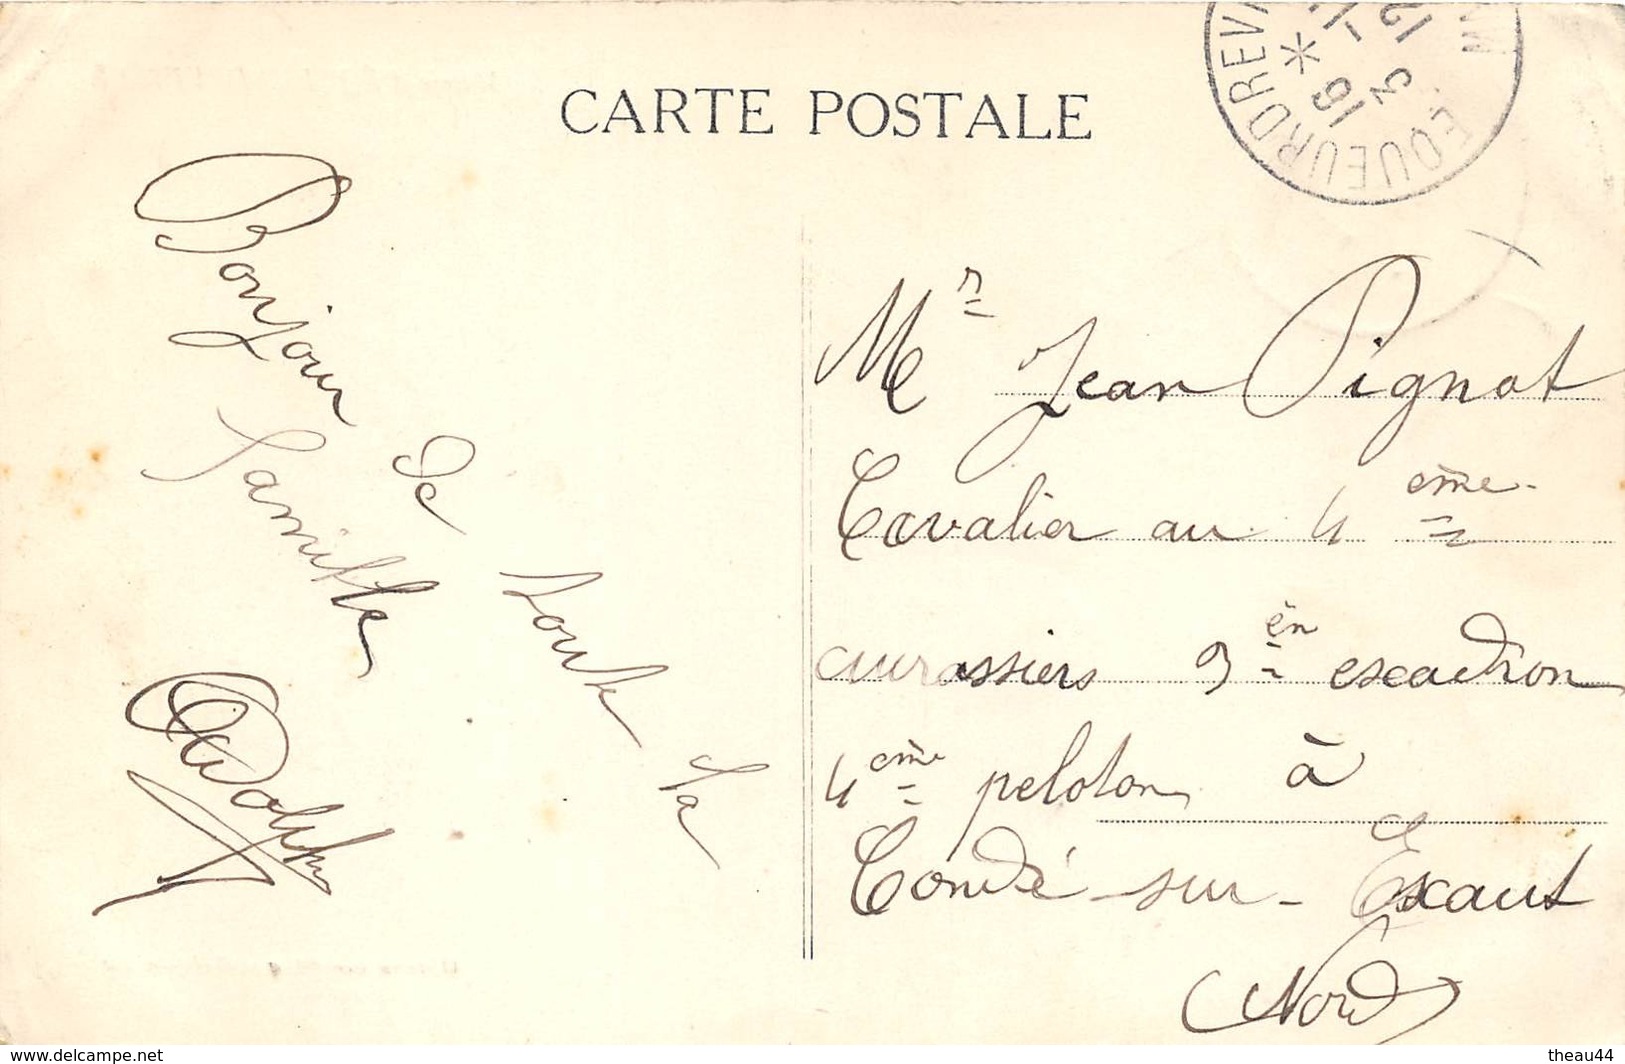 CARTE POSTALE
EQUEURDREVI
* 16
3
12
Bonjour
de toute la
famille
Adolphe
Mr Jean Pignot
Cavalier au 4ème
cuirassiers 3èn escadron
4ème peloton à
Condé-sur-Escaut
(Nord)
www.delcampe.net
theau44